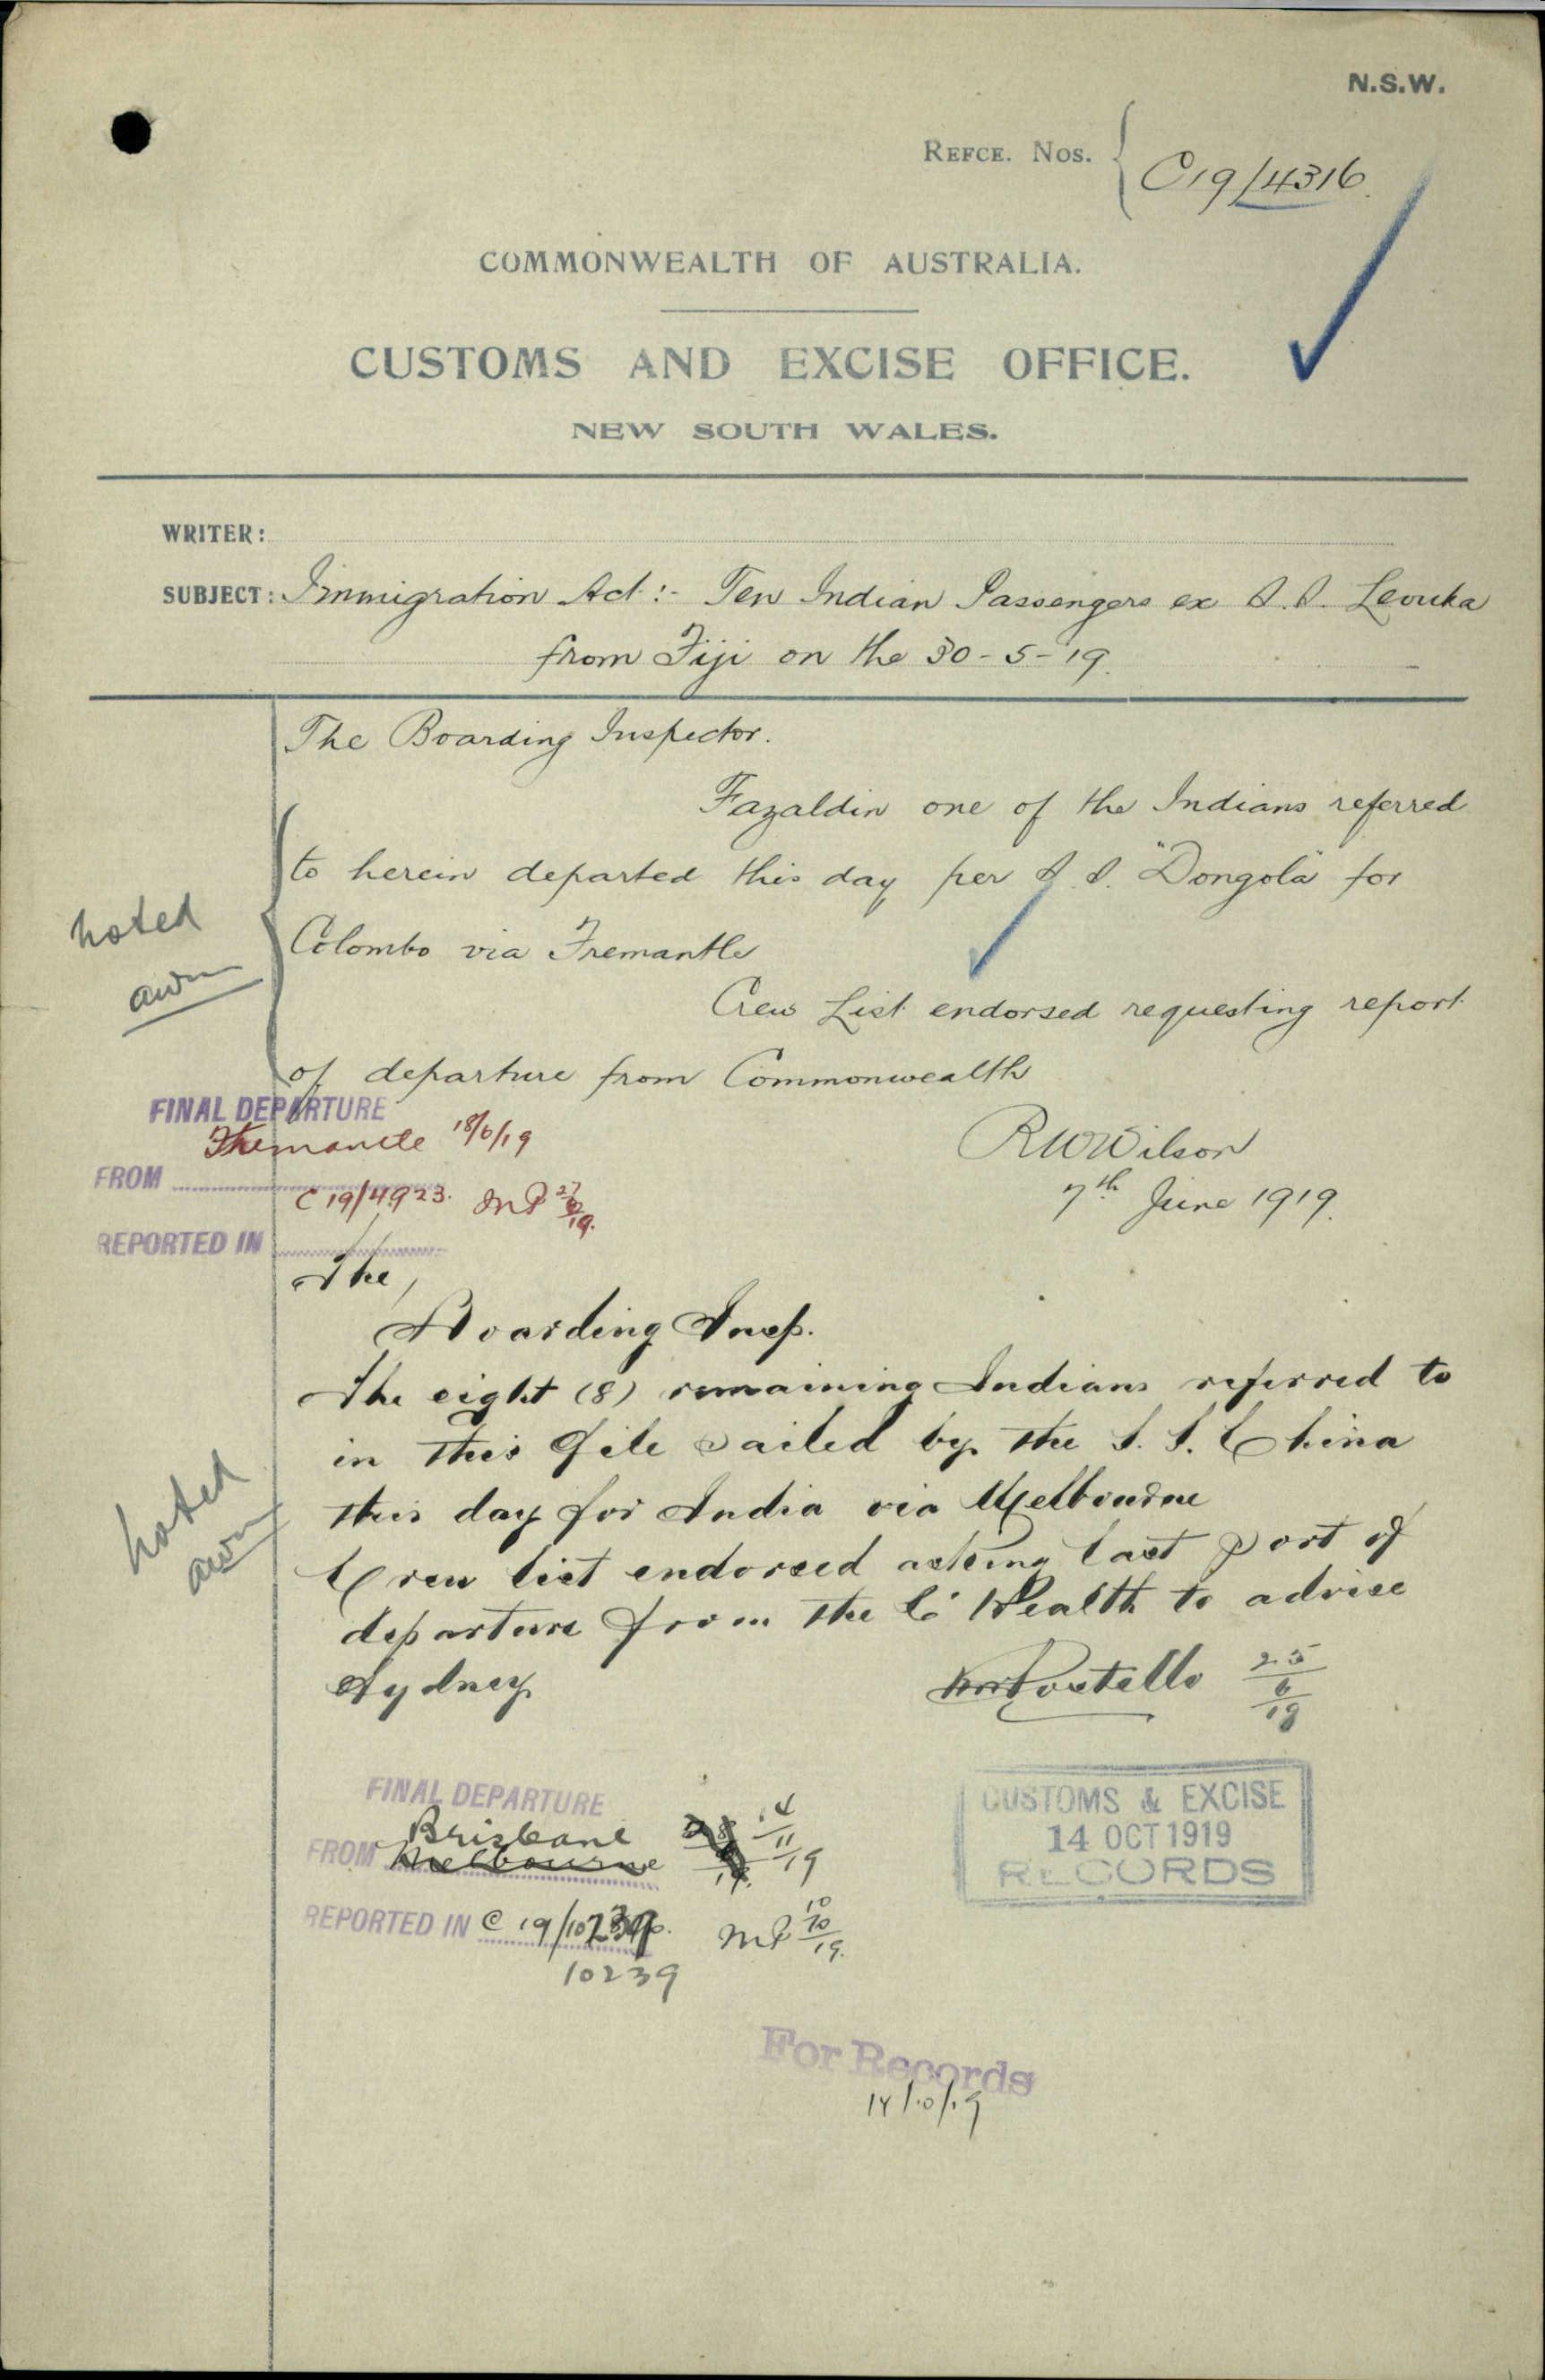 N.S.W.
REFCE. NOS. C19/4316
COMMONWEALTH OF AUSTRALIA.
CUSTOMS AND EXCISE OFFICE.
NEW SOUTH WALES.
WRITER:
SUBJECT: Immigration Act:- Ten Indian Passengers ex S.S. Levuka
from Fiji on the 30-5-19.
The Boarding Inspector.
Fazaldin one of the Indians referred
to herein departed this day per S.S. "Dongola" for
Colombo via Fremantle
noted
awm
Crew List endorsed requesting report
of departure from Commonwealth
FINAL DEPARTURE
FROM Fremantle 18/6/19
REPORTED IN C19/4923. MP 27/6/19.
RWWilson
7th June 1919.
The,
Boarding Insp.
The eight (8) remaining Indians referred to
in this file sailed by the S.S. China
this day for India via Melbourne
Crew list endorsed asking last port of
departure from the C'Wealth to advise
Sydney
noted
awm
Costello 25/6/19
FINAL DEPARTURE
FROM Brisbane Melbourne 4/11/19
REPORTED IN C19/10239 MP 10/10/19.
10239
CUSTOMS & EXCISE
14 OCT 1919
RECORDS
For Records
14/10/19